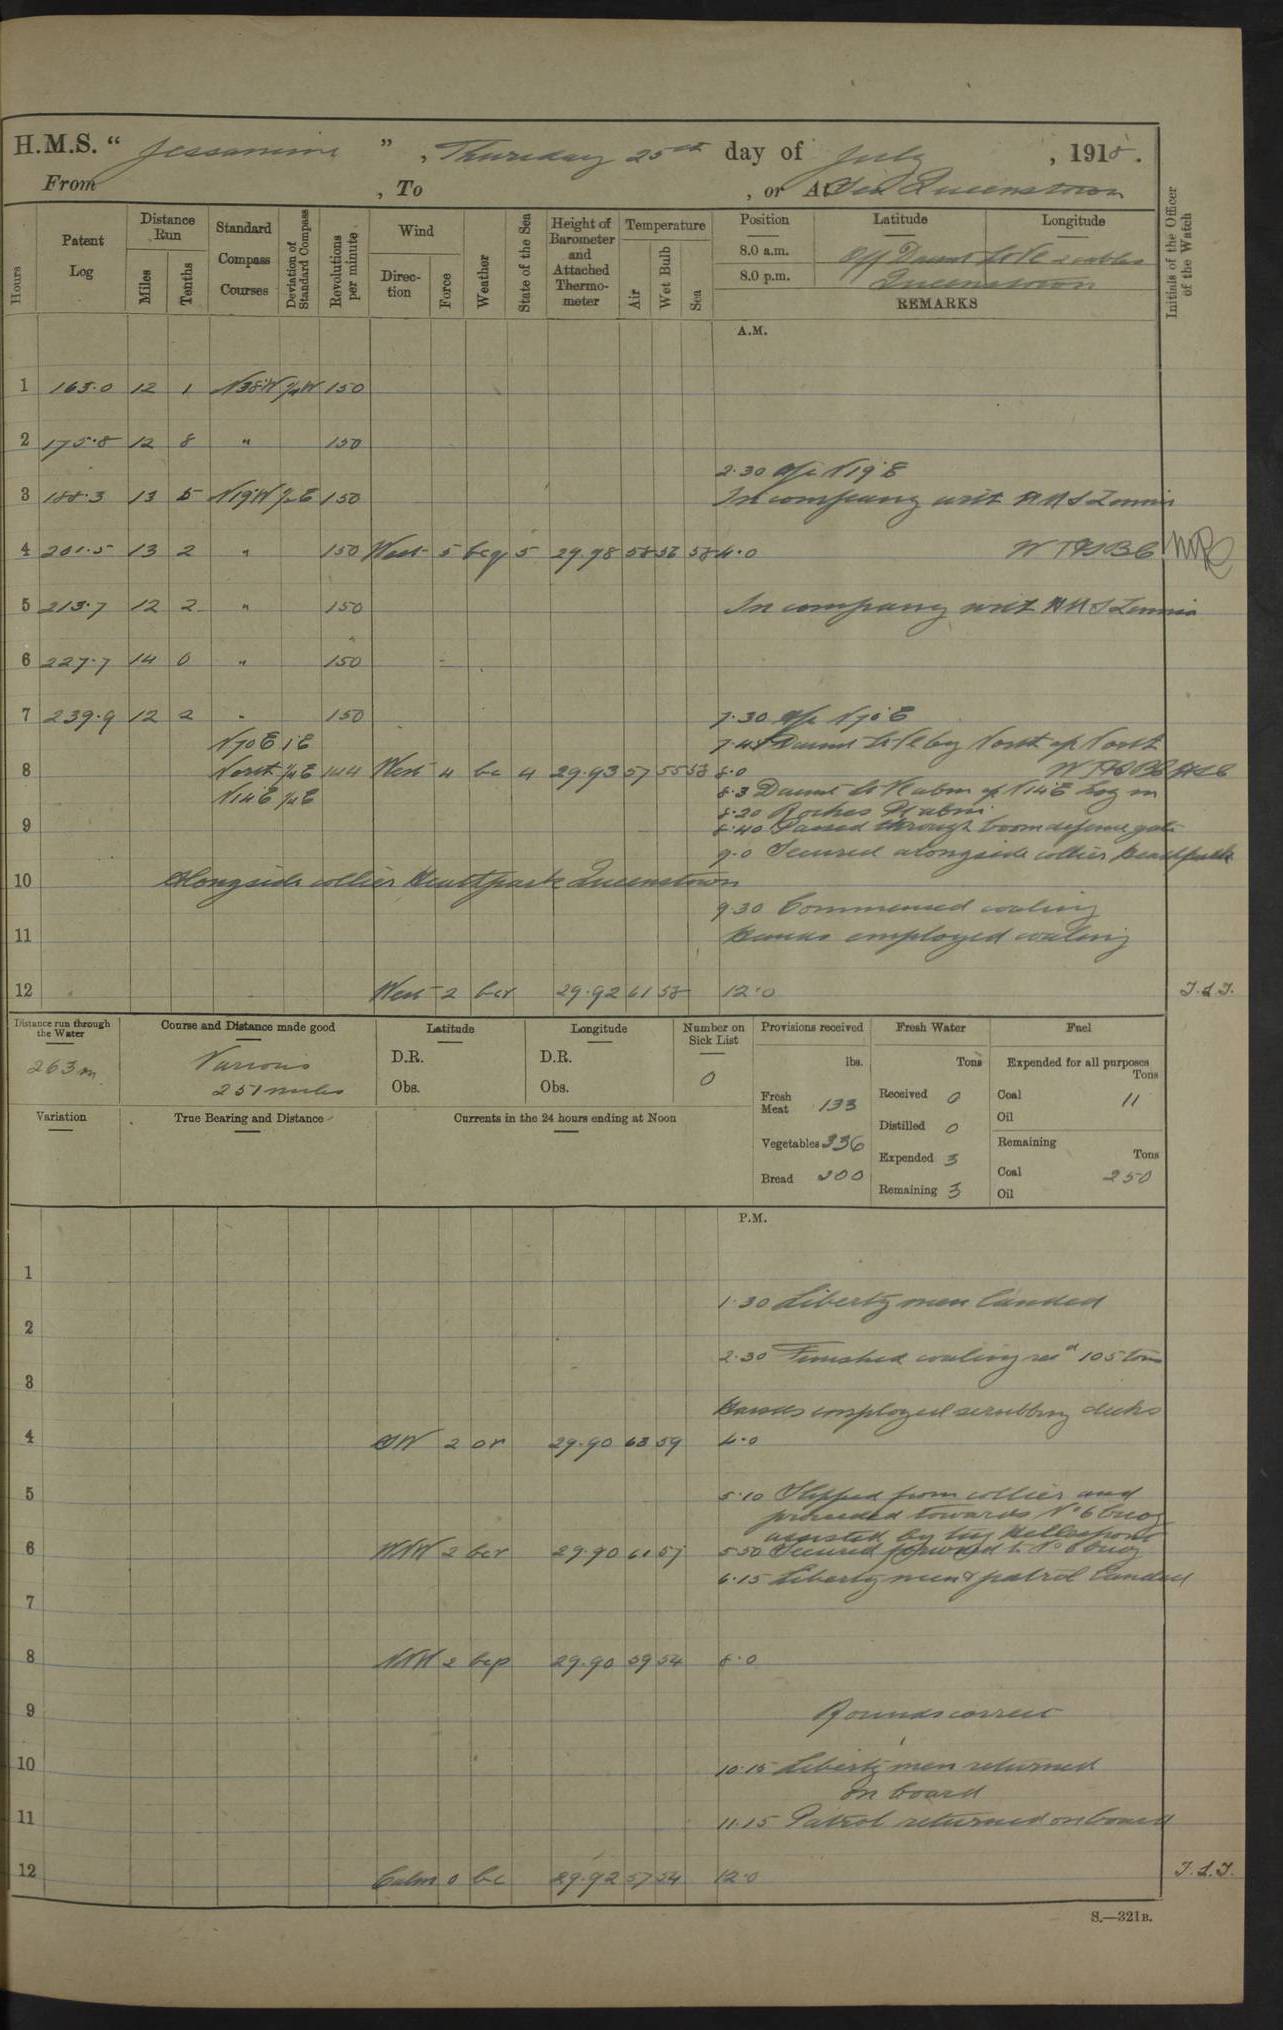 H.M.S. " Jessamine " , Thursday 25th day of July , 1918 .
From , To , or At Sea Queenstown
Hours
Patent Log
Distance Run
Miles
Tenths
Standard Compass Courses
Deviation of Standard Compass
Revolutions per minute
Wind
Direction
Force
Weather
State of the Sea
Height of Barometer and Attached Thermometer
Temperature
Air
Wet Bulb
Sea
Position Latitude Longitude
8.0 a.m. Off Daunt Lt Vl
8.0 p.m. Queenstown
REMARKS
Initials of the Officer of the Watch
A.M.
1 163.0 12 1 N38°W 150
2 175.8 12 8 " 150
2.30 a/c N19°E
3 188.3 13 5 N19°W 150 In company with HMS Zinnia
4 201.5 13 2 " 150 West 5 bcq 5 29.98 58 56 58 4.0
5 213.7 12 2 " 150 In company with HMS Zinnia
6 227.7 14 0 " 150
7 239.9 12 2 " 150 7.30 a/c N70°E
N70E 1°E 7.45 Daunt Lt Vl bg North a/c North
8 North 144 West 4 bc 4 29.93 57 55 58 8.0
N14E 8.3 Daunt Lt V abm a/c N14°E Log in
8.20 Roches Pt abm
9 8.40 Passed through boom defence gate
9.0 Secured alongside collier Heathpark
10 Alongside collier Heathpark Queenstown
9.30 Commenced coaling
11 Hands employed coaling
12 West 2 bcr 29.92 61 58 12.0 J.L.J.
Distance run through the Water
263m
Course and Distance made good
Various
251 miles
Latitude
D.R.
Obs.
Longitude
D.R.
Obs.
Number on Sick List
0
Provisions received
lbs.
Fresh Meat 133
Vegetables 336
Bread 200
Fresh Water
Tons
Received 0
Distilled 0
Expended 3
Remaining 3
Fuel
Expended for all purposes
Tons
Coal 11
Oil
Remaining
Tons
Coal 250
Oil
Variation
True Bearing and Distance
Currents in the 24 hours ending at Noon
P.M.
1
1.30 Liberty men landed
2
2.30 Finished coaling recd 105 tons
3
Hands employed scrubbing decks
4 SW 2 or 29.90 63 59 4.0
5 5.10 Slipped from collier and
proceeded towards No 6 buoy
assisted by tug Hellespont
6 WNW 2 bcr 29.90 61 57 5.50 Secured forward to No 6 buoy
6.15 Liberty men & patrol landed
7
8 NNW 2 bcp 29.90 59 54 8.0
9 Rounds correct
10 10.15 Liberty men returned
on board
11 11.15 Patrol returned on board
12 Calm 0 bc 29.92 57 54 12.0 J.L.J.
S.—321B.